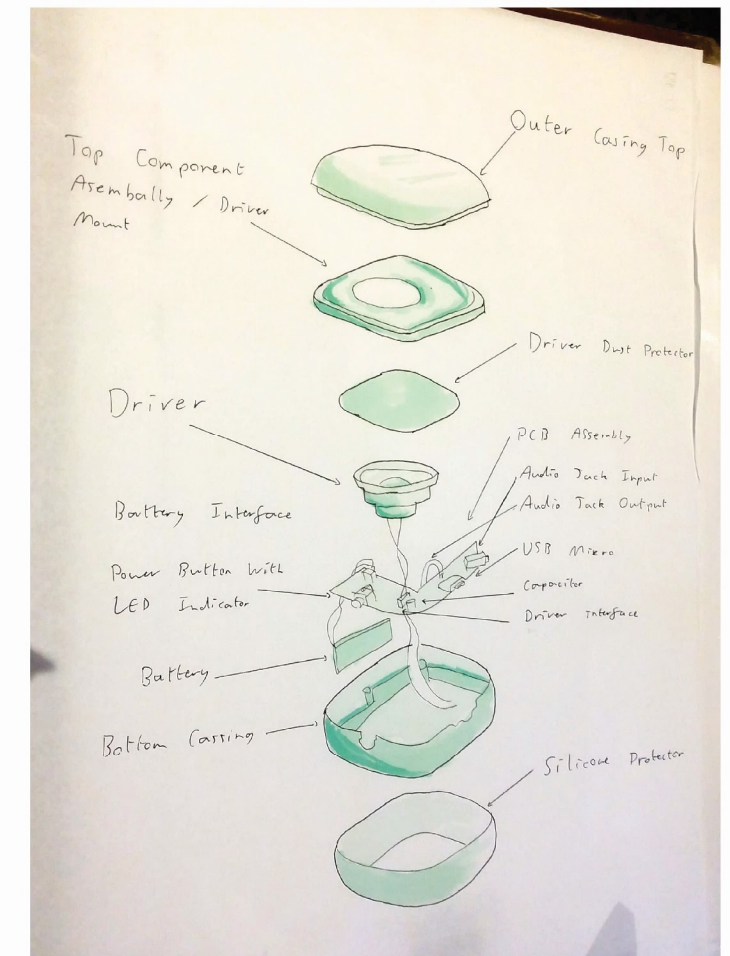 Outer Casing Top
Top Component
Asembally / Driver
Mount
Driver Dust Protector
Driver
PCB Assembly
Audio Jack Input
Audio Jack Output
Battery Interface
USB Mikro
Power Button With
LED Indicator
Capacitor
Driver interface
Battery
Bottom Cassing
Silicone Protector